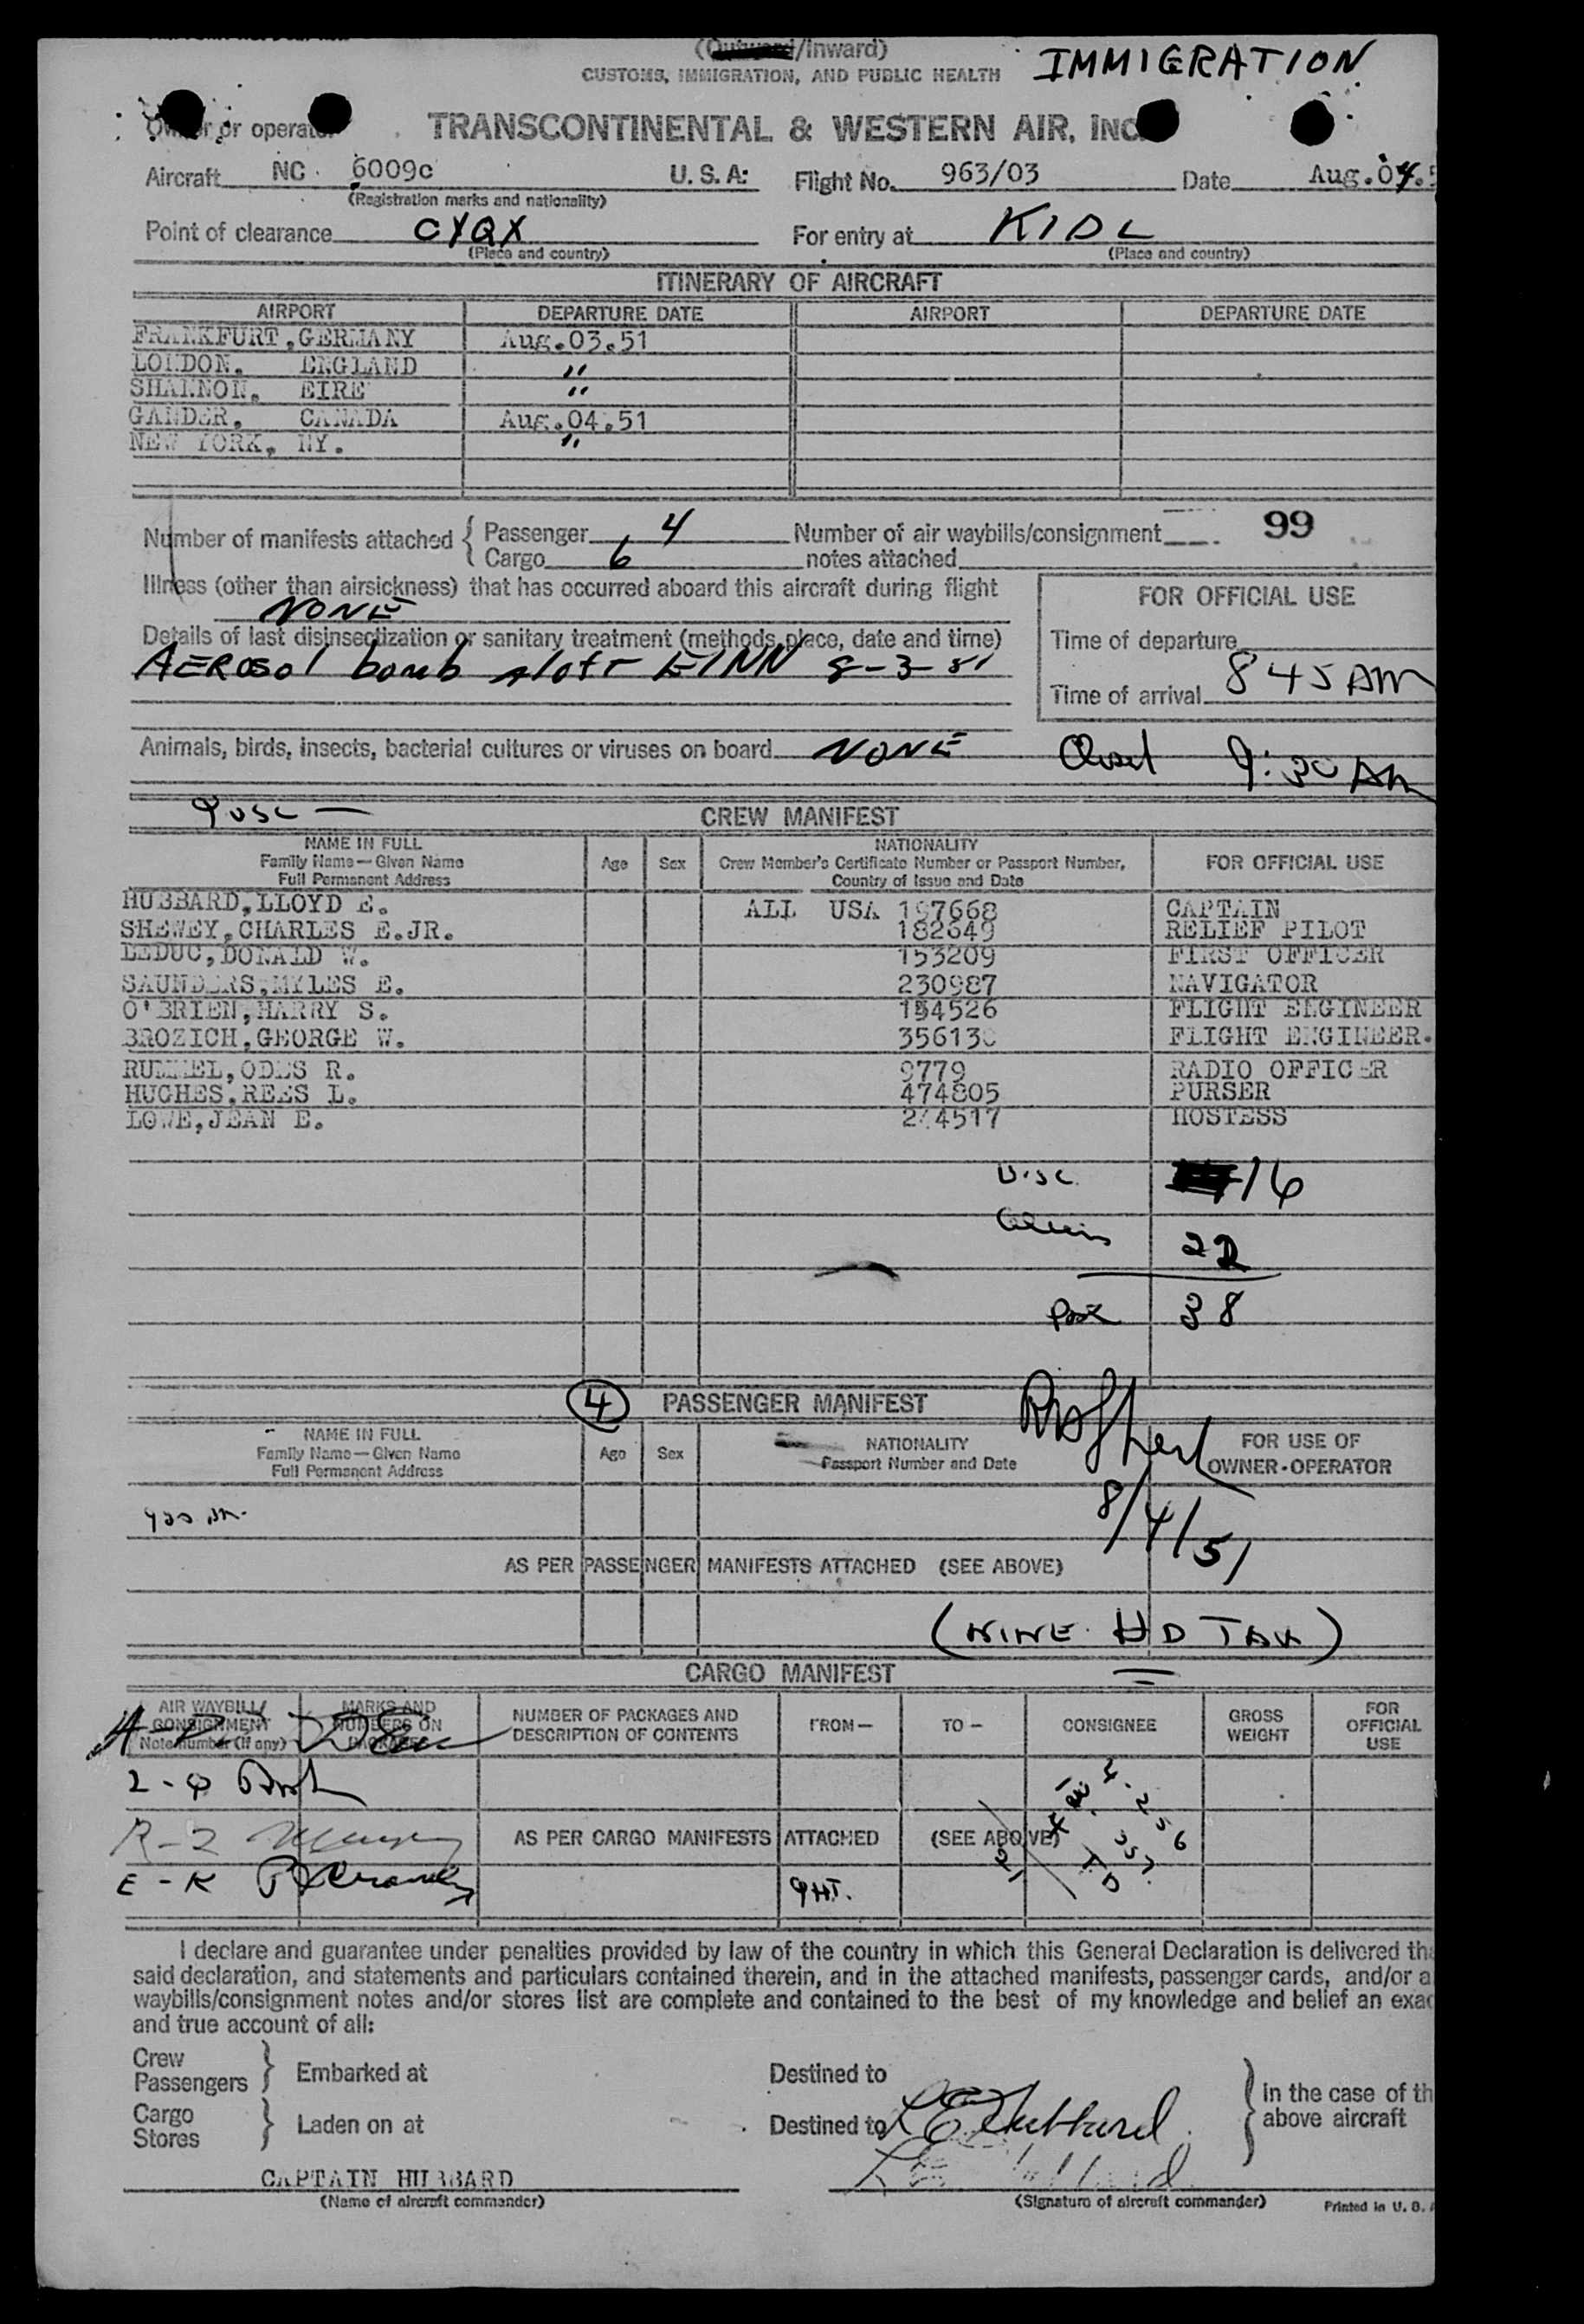 (Outward/Inward)
CUSTOMS, IMMIGRATION, AND PUBLIC HEALTH IMMIGRATION
Owner or operator TRANSCONTINENTAL & WESTERN AIR, INC.
Aircraft NC 6009c U.S.A. Flight No. 963/03 Date Aug.04.5
(Registration marks and nationality)
Point of clearance CYQX For entry at KIDL
(Place and country) (Place and country)
ITINERARY OF AIRCRAFT
AIRPORT DEPARTURE DATE AIRPORT DEPARTURE DATE
FRANKFURT,GERMANY Aug.03.51
LONDON. ENGLAND "
SHANNON. EIRE "
GANDER. CANADA Aug.04.51
NEW YORK, NY. "
Number of manifests attached { Passenger 4 Number of air waybills/consignment 99
Cargo 6 notes attached
Illness (other than airsickness) that has occurred aboard this aircraft during flight
NONE
FOR OFFICIAL USE
Details of last disinsectization or sanitary treatment (methods, place, date and time)
Time of departure
AEROSOL bomb aloft EINN 8-3-51
Time of arrival 845 AM
Animals, birds, insects, bacterial cultures or viruses on board NONE
9:30 AM
CREW MANIFEST
NAME IN FULL
Family Name—Given Name
Full Permanent Address
Age Sex
NATIONALITY
Crew Member's Certificate Number or Passport Number,
Country of Issue and Date
FOR OFFICIAL USE
HUBBARD,LLOYD E. ALL USA 197668 CAPTAIN
SHEWEY,CHARLES E.JR. 182649 RELIEF PILOT
LEDUC,DONALD W. 153209 FIRST OFFICER
SAUNDERS,MYLES E. 230987 NAVIGATOR
O'BRIEN,HARRY S. 154526 FLIGHT ENGINEER
BROZICH,GEORGE W. 35613 FLIGHT ENGINEER.
RUMMEL,ODES R. 9779 RADIO OFFICER
HUGHES,REES L. 474805 PURSER
LOWE,JEAN E. 244517 HOSTESS
U.S.C. 16
22
38
4 PASSENGER MANIFEST
NAME IN FULL
Family Name—Given Name
Full Permanent Address
Age Sex
NATIONALITY
Passport Number and Date
FOR USE OF
OWNER-OPERATOR
8/4/51
AS PER PASSENGER MANIFESTS ATTACHED (SEE ABOVE)
(NINE HD TAX)
CARGO MANIFEST
AIR WAYBILL/
CONSIGNMENT
Note number (if any)
MARKS AND
NUMBERS ON
PACKAGES
NUMBER OF PACKAGES AND
DESCRIPTION OF CONTENTS
FROM— TO— CONSIGNEE
GROSS
WEIGHT
FOR
OFFICIAL
USE
AS PER CARGO MANIFESTS ATTACHED (SEE ABOVE)
R-Z
E-K
I declare and guarantee under penalties provided by law of the country in which this General Declaration is delivered th
said declaration, and statements and particulars contained therein, and in the attached manifests, passenger cards, and/or a
waybills/consignment notes and/or stores list are complete and contained to the best of my knowledge and belief an exac
and true account of all:
Crew
Passengers } Embarked at Destined to
Cargo
Stores } Laden on at Destined to
in the case of th
above aircraft
L E Hubbard
CAPTAIN HUBBARD
(Name of aircraft commander) (Signature of aircraft commander) Printed in U. S.